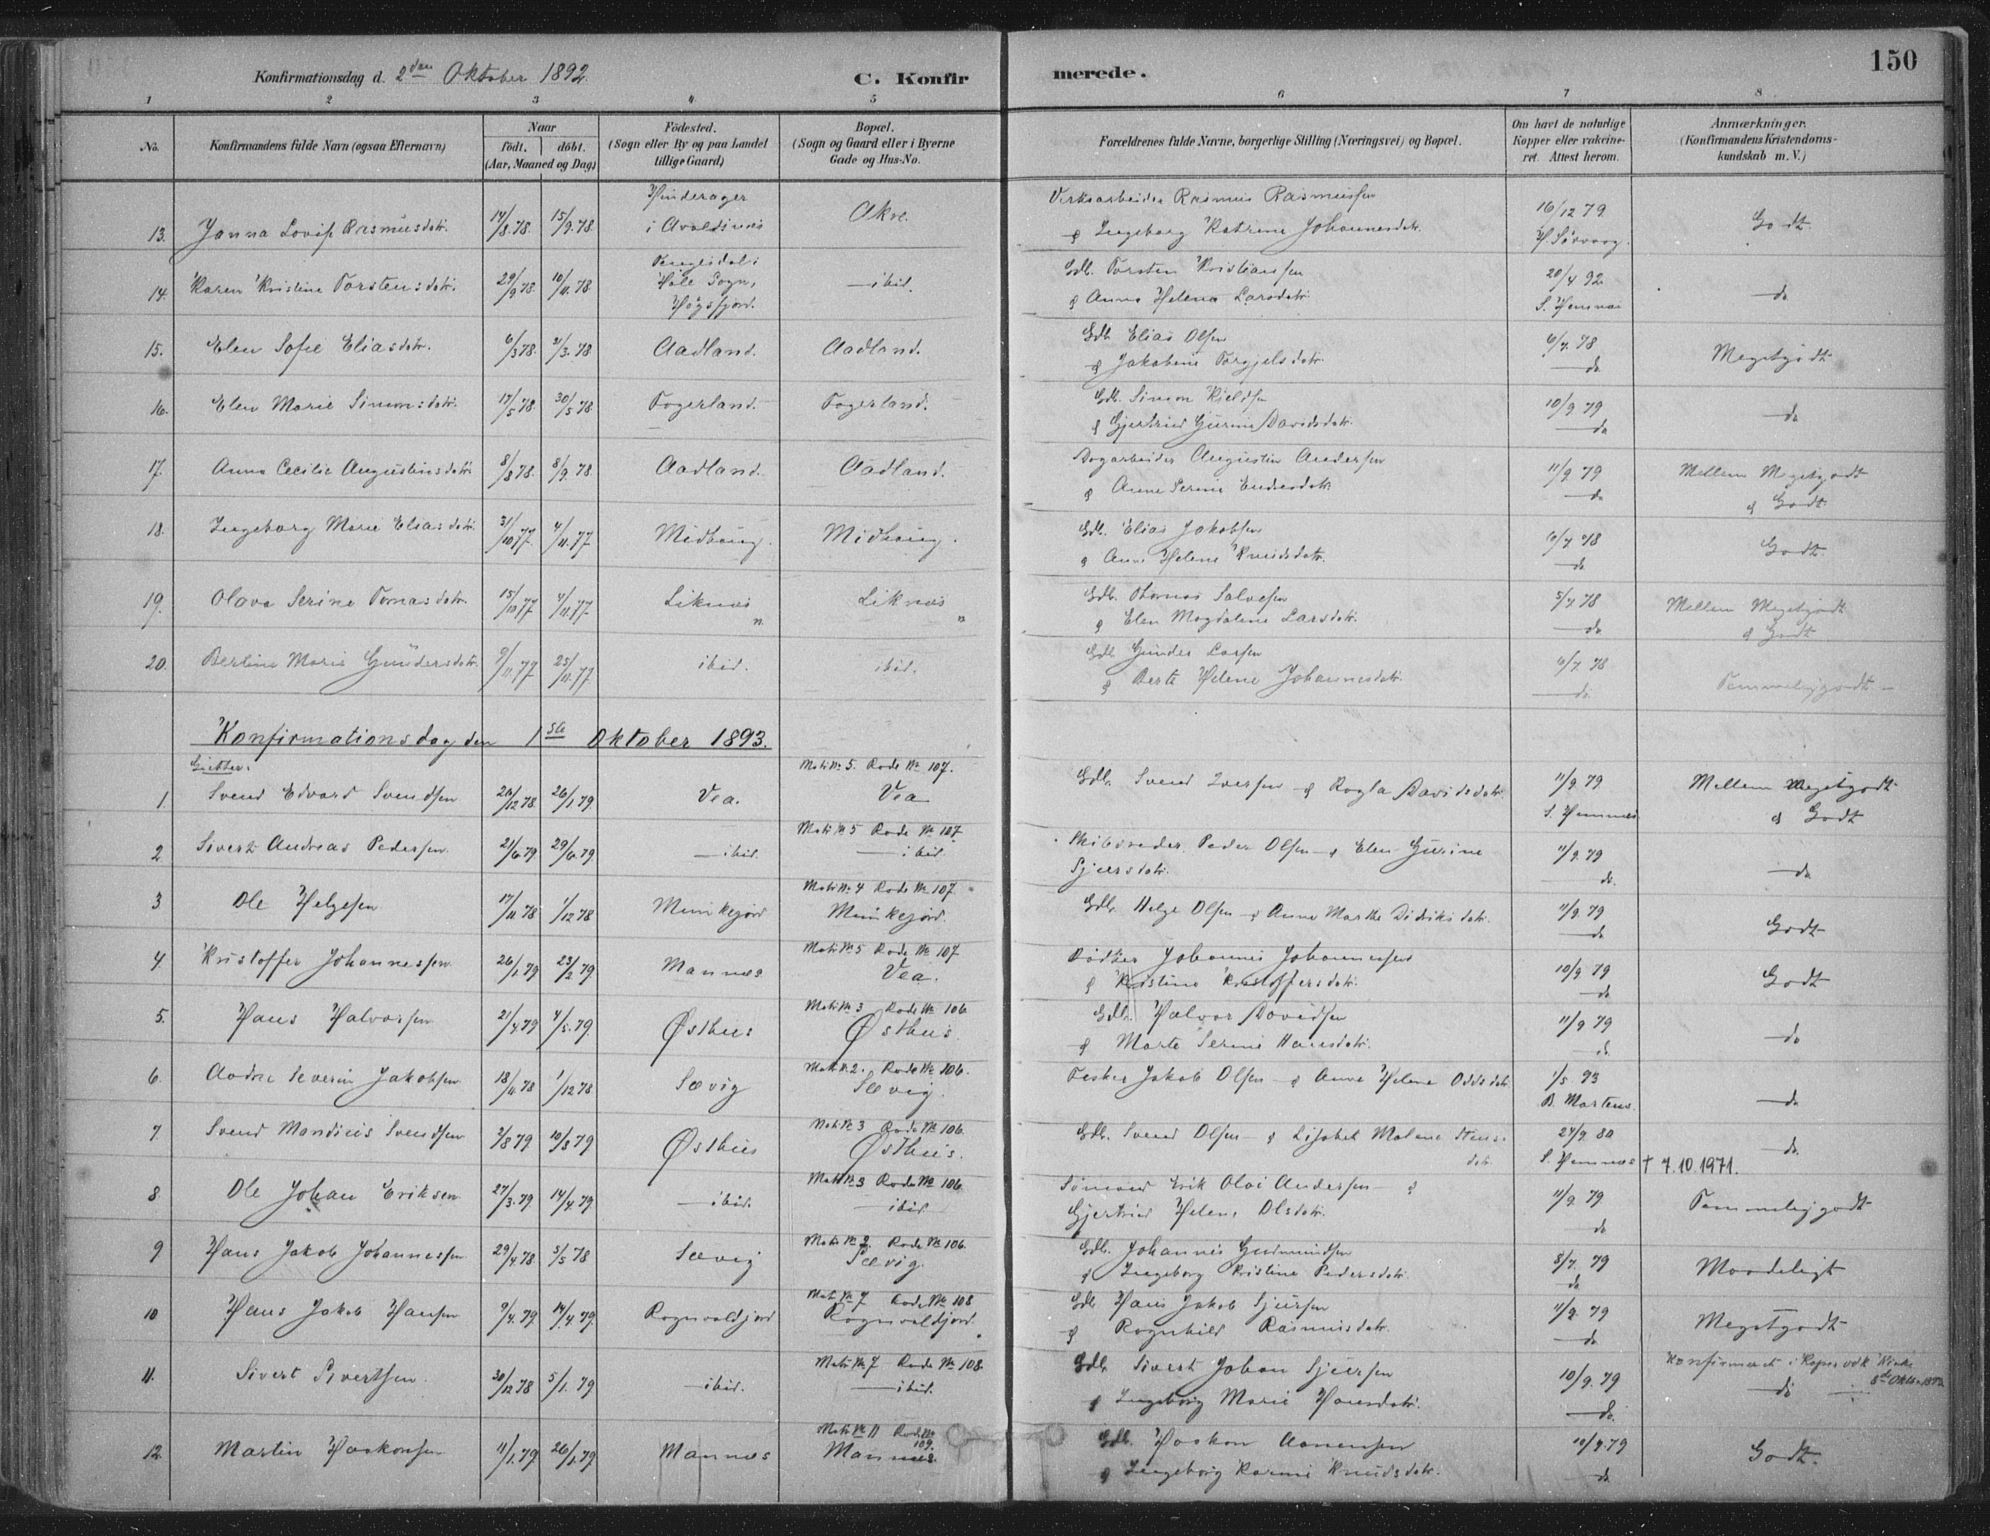 150
Konfirmationsdag d. 2den Oktober 1892.
C. Konfirmerede.
1 2 3 4 5 6 7 8
No.
Konfirmandens fulde Navn (ogsaa Efternavn)
Naar
født. døbt.
(Aar, Maaned og Dag)
Fødested.
(Sogn eller By og paa Landet
tillige Gaard)
Bopæl.
(Sogn og Gaard eller i Byerne
Gade og Hus-No.
Forældrenes fulde Navne, borgerlige Stilling (Næringsvei) og Bopæl.
Om havt de naturlige
Kopper eller vakcine-
ret. Attest herom.
Anmærkninger.
(Konfirmandens Kristendoms-
kundskab m. V.)
13. Janna Lovise Rasmusdatr. 14/8.78. 15/9.78. Hinderager i Avaldsnes Akre. Rasmus Rasmussen
& Ingeborg Katrine Johannesdatr. 16/12 79 Godt
14. Karen Kristine Torstensdatr. 29/9 78 10/11.78 Høle Sogn, Høgsfjord. ibid. Gdb. Torsten Kristiansen
& Anna Helena Larsdatr. 20/4 92 do
15. Elen Sofie Eliasdatr. 6/3 78. /3.78 Aadland. Aadland. Gdb. Elias Olsen
& Jakobine Torgjelsdatr. 6/7.78 do Megetgodt
16. Elen Marie Simonsdatr. 17/5 78 30/5 78 Fogerland. Fogerland. Gdb. Simon Kjeldsen
& Gjertrud Gurine Davidsdatr. 10/9 79 do do
17. Anna Cecilie Augustinsdatr. 8/8 78. 8/9.78 Aadland. Aadland. Dagarbeider Augustin Andersen
& Anne Serine Endresdatr. 11/9 79 do Mellem Megetgodt
& Godt
18. Ingeborg Marie Eliasdatr. 31/10 77. 4/11.77 Midbøug. Midbøug. Gdb. Elias Jakobsen
& Ane Helene Knudsdatr. 6/7 78 do Godt.
19. Olava Serine Tomasdatr. 15/10 77 4/11.77 Liknæs Liknæs Gdb. Thomas Salvesen
& Elen Magdalene Larsdatr. 5/7 78 do Mellem Megetgodt
& Godt
20. Bertine Marie Gundersdatr. 9/11.77 25/11.77 ibid. ibid. Gdb. Gunder Larsen
& Berte Helene Johannesdatr. 6/7. 78 do. Temmeliggodt
Konfirmationsdag den 1ste Oktober 1893.
Gutter.
1. Svend Edvard Svendsen 20/12 78. 26/1.79 Vea. Matr. № 5. Rode № 107.
Vea Gdb. Svend Iversen & Ragla Davidsdatr. 11/9 79
S. Hemnes Mellem Megetgodt
& Godt
2 Sivert Andreas Pedersen 21/6 79 29/6.79 ibid. Matr. № 5 Rode № 107
ibid. Skibsreder Peder Olsen & Elen Gurine
Sjursdatr. 11/9.79 do. do
3 Ole Helgesen 17/11 78 1/12 78 Munkejord Matr. № 4 Rode № 107
Munkejord. Gdb. Helge Olsen & Anne Marthe Didriksdatr. 11/9.79 do Godt
4. Kristoffer Johannessen 26/1.79 23/2 79 Mannes Matr. № 5 Rode № 107
Vea. Bødker Johannes Johannessen
& Kristine Kristoffersdatr. 10/9 79 do Godt
5. Hans Halvorsen 21/4 79 4/5.79 Østhus Matr. № 3 Rode № 106
Østhus. Gdb. Halvor Davidsen
& Marte Serine Hansdatr. 11/9 79 do. do
6. Andreas Severin Jakobsen 18/11.78 1/12 78 Sævig Matr. № 2. Rode № 106.
Sævig. Fisker Jakob Olsen & Anne Helene Oddsdatr. 1/5 93
B. Martens. do
7. Svend Mandius Svendsen 2/8 79 10/8 79 Østhus Matr. № 3 Rode № 106.
Østhus. Gdb. Svend Olsen & Lisabet Malene
datr. 24/9 80
S. Hemnes do.
† 7.10.1971.
8. Ole Johan Eriksen 27/3.79 14/4.79 ibid. Matr. № 3 Rode № 106
ibid. Sømand Erik Olai Andersen &
Gjertrud Helene Olsdatr. 11/9 79 do Temmeliggodt
9 Hans Jakob Johannessen 29/4.78 5/5 78 Sævig Matr. № 2. Rode № 106.
Sævig. Gdb. Johannes Gudmundsen
& Ingeborg Kristine Pedersdatr. 8/7. 79 do Maadeligt
10 Hans Jakob Hansen 9/4.79 14/4.79 Rognvaldjord Matr. № 7 Rode № 108
Rognvaldjord. Gdb. Hans Jakob Sjursen
& Rognhild Rasmusdatr. 11/9. 79 do Megetgodt
11. Sivert Sivertsen. 30/12 78 5/1.79 ibid. Matr. № 7 Rode № 108.
ibid. Gdb. Sivert Johan Sjursen
& Ingeborg Marie Hansdatr. 10/9.79 do. Konfirmeret i Kopervik Kirke
8de Oktbr. do
12. Martin Haakonsen 11/1.79 26/1.79 Mannes Matr. № 11 Rode № 109.
Mannes. Gdb. Haakon Aanensen
& Ingeborg Karine Knudsdatr. 10/9.79 do Godt.